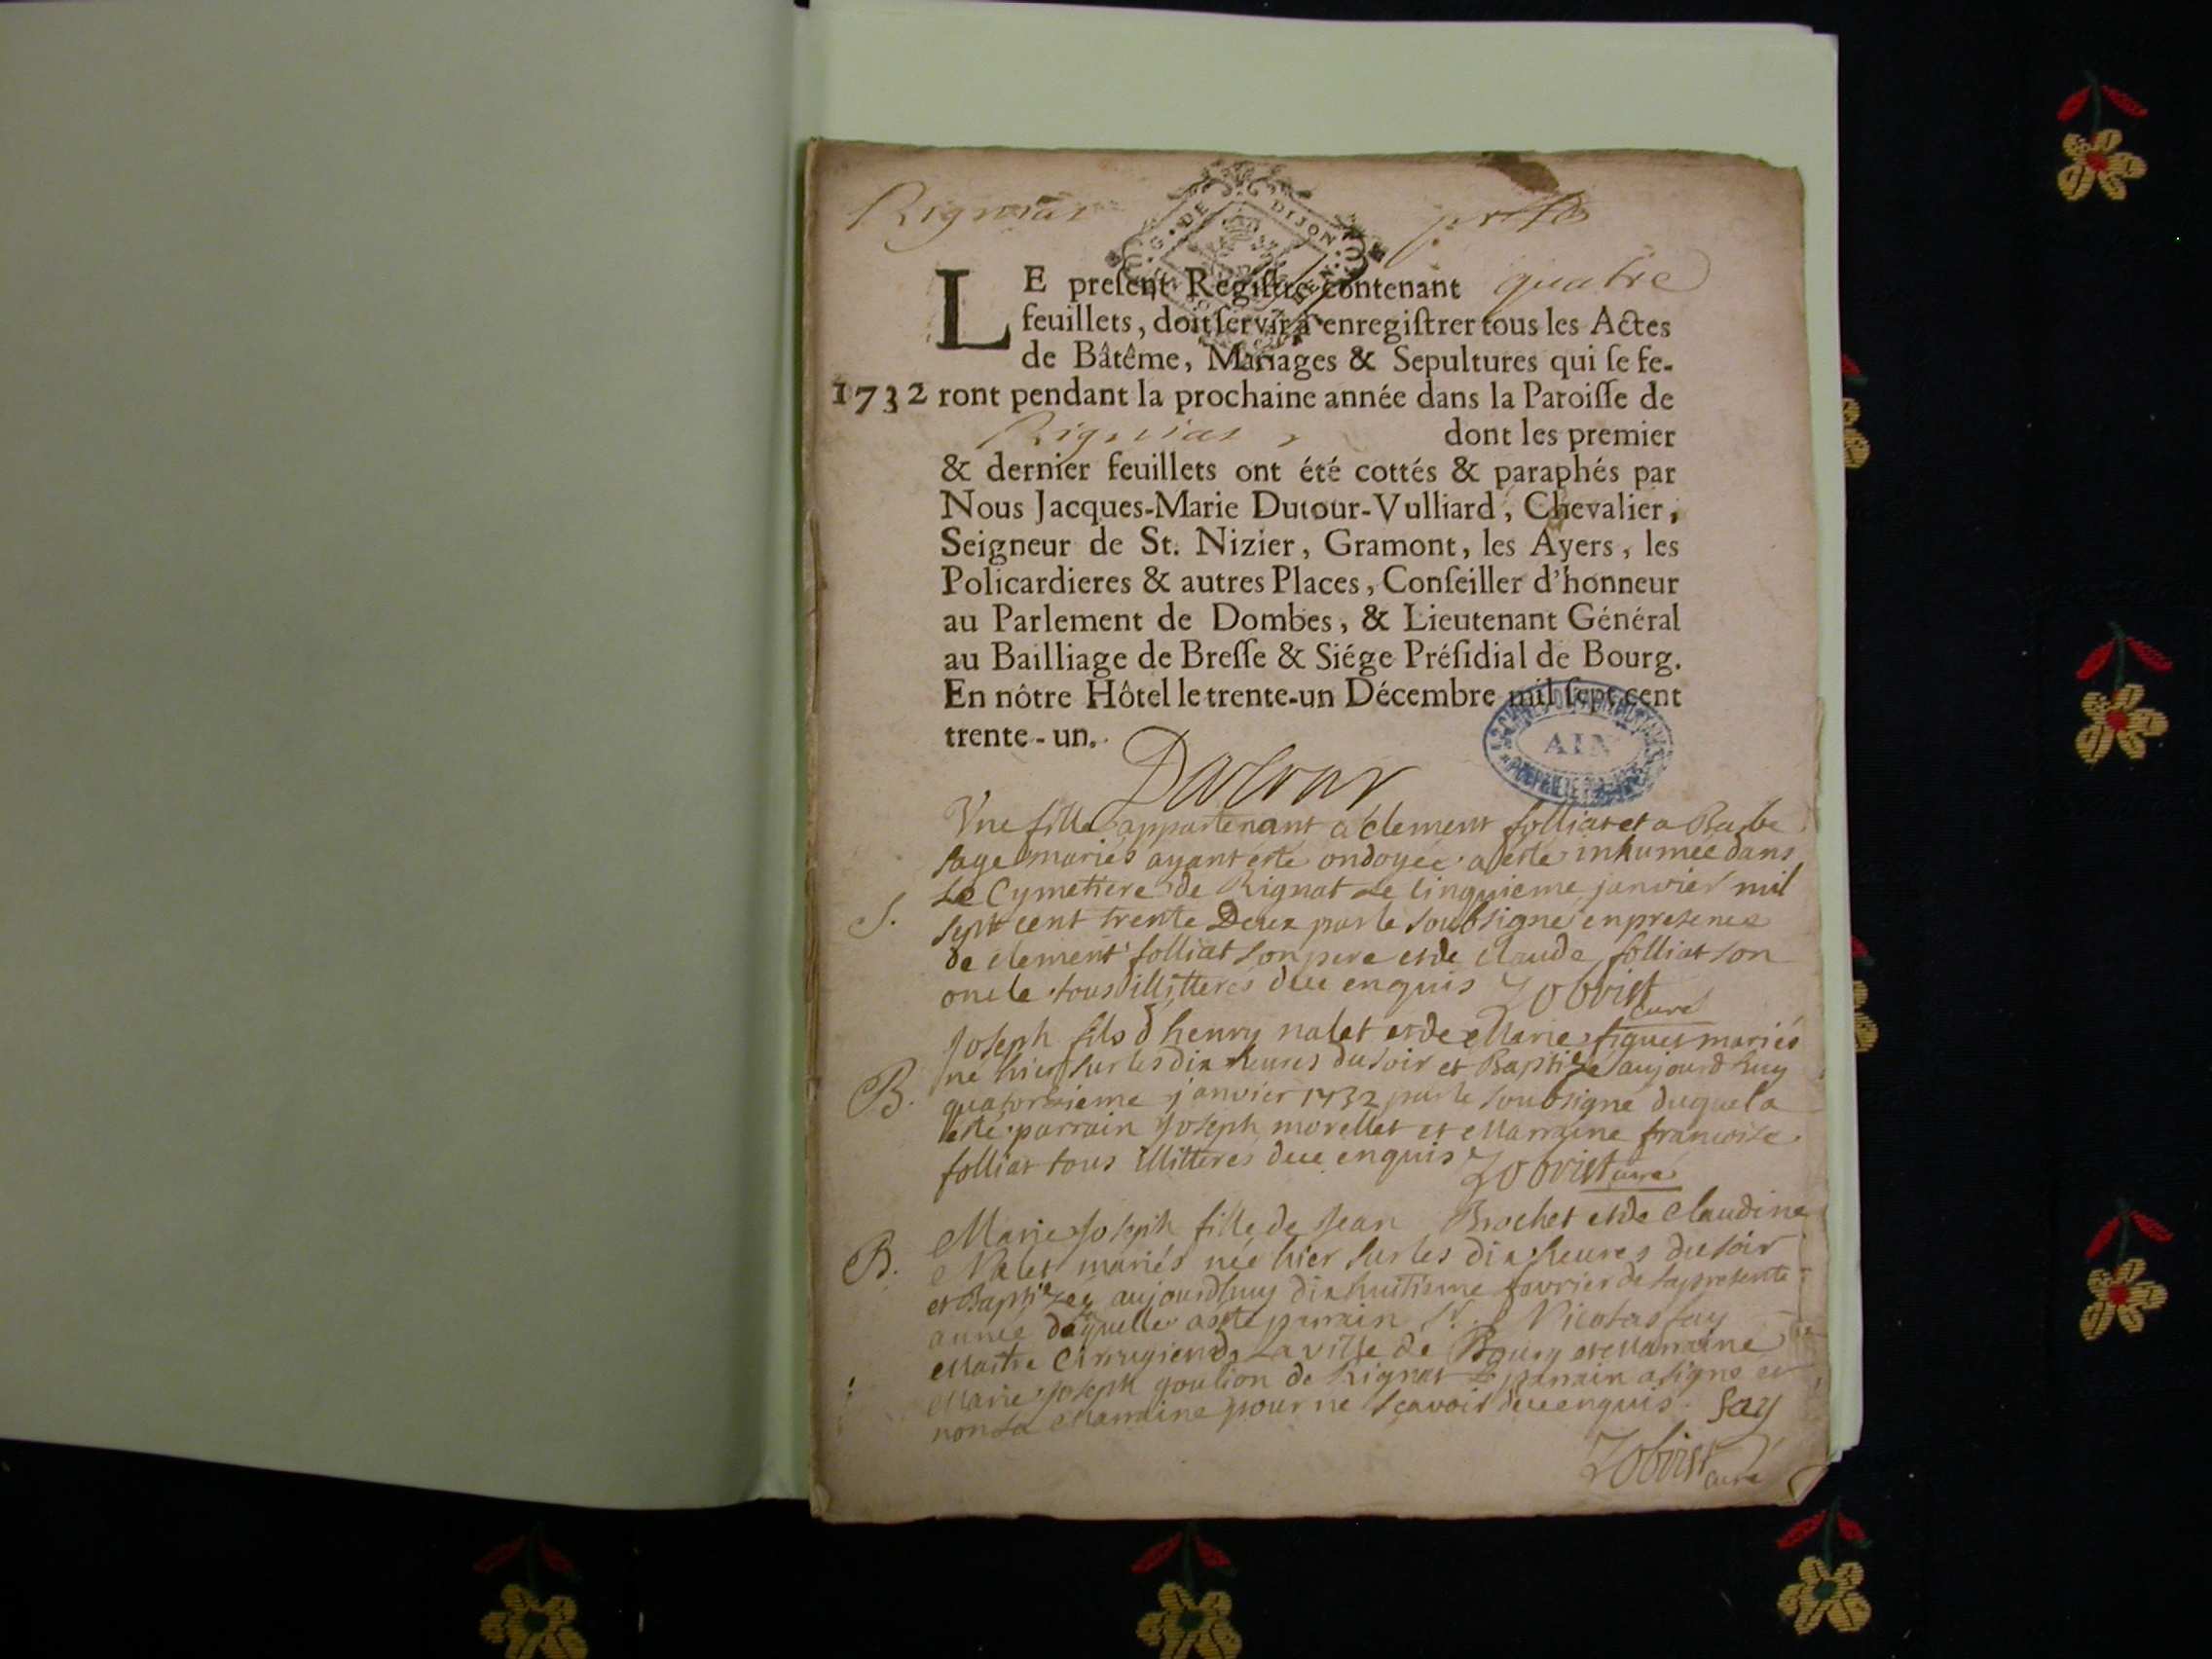 Rignat
G. DE DIJON
LE preſent Regiſtre contenant quatre
feuillets, doit ſervir à enregiſtrer tous les Actes
de Bâtême, Mariages & Sepultures qui ſe fe-
1732 ront pendant la prochaine année dans la Paroiſſe de
Rignat dont les premier
& dernier feuillets ont été cottés & paraphés par
Nous Jacques-Marie Dutour-Vulliard, Chevalier,
Seigneur de St. Nizier, Gramont, les Ayers, les
Policardieres & autres Places, Conſeiller d'honneur
au Parlement de Dombes, & Lieutenant Général
au Bailliage de Breſſe & Siége Préſidial de Bourg.
En nôtre Hôtel le trente-un Décembre mil ſept cent
trente-un.
AIN
Dutour
Une fille appartenant a clement folliat et a Barbe
sage mariés ayant esté ondoyée a esté inhumée dans
S. Le Cymetiere de Rignat Le cinquieme janvier mil
sept cent trente Deux par le soubsigné en presence
de clement folliat son pere et de claude folliat son
oncle tous illitterés due enquis curé
Joseph fils d henry nalet et de Marie mariés
né hier sur les dix heures du soir et Baptizé aujourd huy
B. quatorzieme janvier 1732 par le soubsigné duquel a
esté parrain Joseph morellet et Marraine francoise
folliat tous illitteres due enquis curé
Marie Joseph fille de Jean Brochet et de Claudine
B. Nalet mariés née hier sur les dix heures du soir
et Baptizée aujourdhuy dix huitieme fevrier de la presente
année de quelle a esté parrain Sr. Nicolas fay
Maitre Cirrugien de La ville de Bourg et Marraine
Marie Joseph goulion de Rignat Le parrain a signé et
non La Marraine pour ne sçavoir due enquis. fay
curé